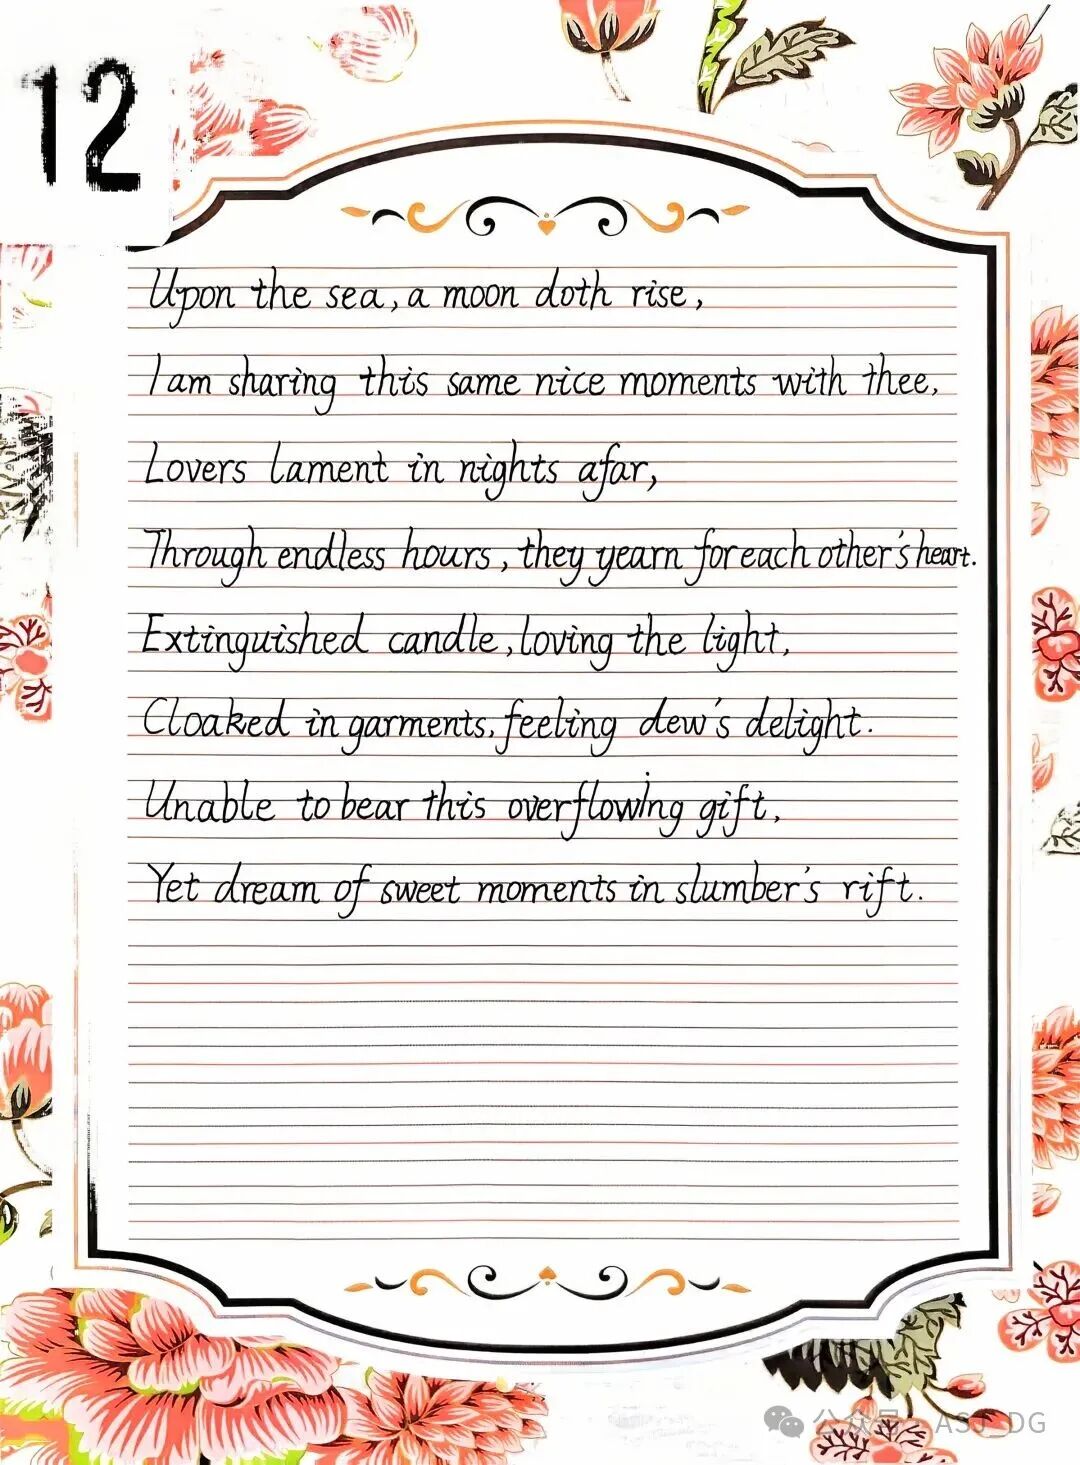 12
Upon the sea, a moon doth rise,
I am sharing this same nice moments with thee,
Lovers lament in nights afar,
Through endless hours, they yearn for each other's heart.
Extinguished candle, loving the light,
Cloaked in garments, feeling dew's delight.
Unable to bear this overflowing gift,
Yet dream of sweet moments in slumber's rift.
公众号 · ASJ_DG